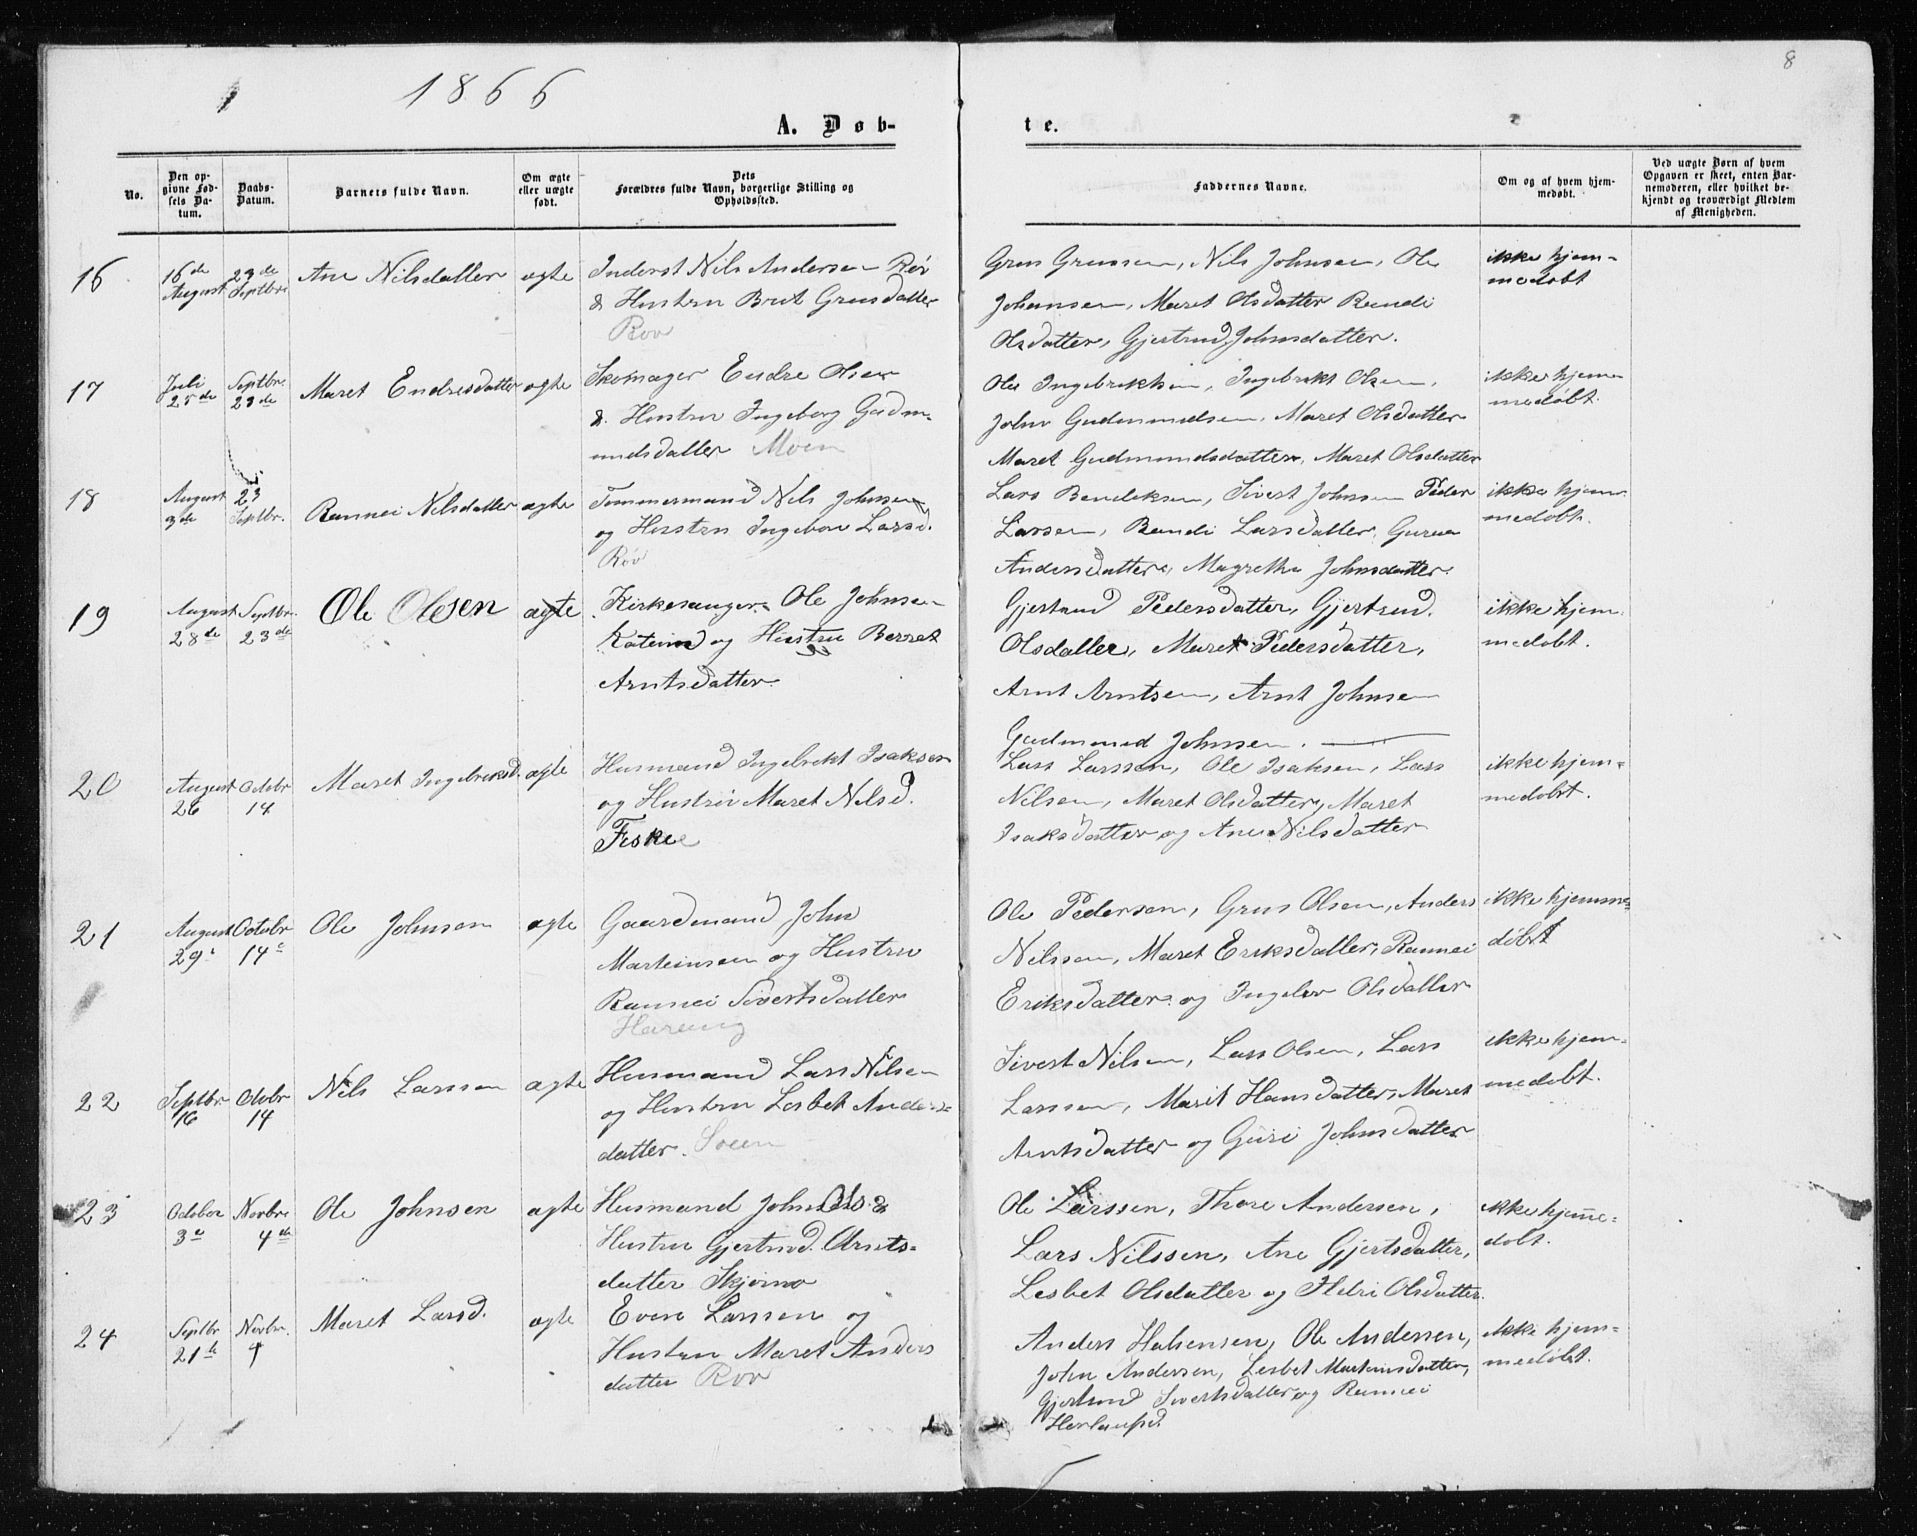 8
1866
A. Døb-
te.
No.
Den op-
givne Fød-
sels Da-
tum.
Daabs-
Datum.
Barnets fulde Navn.
Om ægte
eller uægte
født.
Dets
Forældres fulde Navn, borgerlige Stilling og
Opholdssted.
Faddernes Navne.
Om og af hvem hjem-
medøbt.
Ved uægte Børn af hvem
Opgaven er skeet, enten Bar-
nemoderen, eller hvilket be-
kjendt og troværdigt Medlem
af Menigheden.
16
16de
August
23de
Septbr.
Ane Nilsdatter
ægte
Inderst Nils Andersen Röv
& Hustru Brit Grunsdatter
Rov
Nils Johnsen, Ole
Johansen, Maret Olsdatter Randi
Olsdatter, Gjertrud Johnsdatter.
ikke hjem-
medøbt
17
Juli
25de
Septbr.
23de
Maret Endresdatter
ægte
Skomager Endre Olsen
& Hustru Ingeborg Gudm-
undsdatter Moen
Ole Ingebrektsen, Ingebrekt Olsen,
John Gudmundsen, Maret Olsdatter
Maret Gudmundsdatter, Maret Olsdatter
ikke hjem-
medøbt.
18
August
3de
23
Septbr.
Rannei Nilsdatter
ægte
Tømmermand Nils Johnsen
og Hustru Ingebor Larsd.
Röv
Lars Bendiksen, Sivert Johnsen Peder
Larsen, Randi Larsdatter, Guruo
Andersdatter, Magrethe Johnsdatter.
ikke hjem-
medøbt.
19
August
28de
Septbr.
23de
Ole Olesen
ægte
Kirkesanger Ole Johnsen
og Hustru Berret
Arntsdatter.
Gjertrud Pedersdatter, Gjertrud
Olsdatter, Maret Pedersdatter,
Arnt Arntsen, Arnt Johnsen
Gudmund Johnsen.
ikke hjem
medøbt.
20
August
26
Octobr
14
Maret Ingebriksd.
ægte
Husmand Ingebrekt Isaksen
og Hustru Maret Nilsd.
Feskee
Lars Larssen, Ole Isaksen, Lars
Nilsen, Maret Olsdatter, Maret
Isaksdatter og Ane Nilsdatter
ikke hjem-
medøbt.
21
August
29
Octobr
14
Ole Johnsen
ægte
Gaardmand John
Marteinsen og Hustru
Rannei Sivertsdatter
Haraug
Ole Pedersen, Grus Olsen, Anders
Nilssen, Maret Eriksdatter, Rannei
Eriksdatter og Ingebor Olsdatter
ikke hjemme-
døbt
22
Septbr
16
Octbr
14
Nils Larssen
ægte
Husmand Lars Nilsen
og Hustru Lesbet Anders-
datter. Soeen
Sivert Nilsen, Lars Olsen, Lars
Larssen, Marit Hansdatter, Maret
Arntsdatter og Guri Johnsdatter
ikke hjem-
medøbt.
23
October
3
Novbr
4de
Ole Johnsen
ægte
Husmand John Ols. &
Hustru Gjertrud Arnts-
datter Skjermo
Ole Larssen, Thore Andersen,
Lars Nilssen, Ane Gjertsdatter,
Lesbet Olsdatter og Ildri Olsdatter.
ikke hjem̄e-
døbt.
24
Septbr
21
Novbr.
4
Maret Larsd.
ægte
Even Larssen og
Hustru Maret Anders
datter Rov
Anders Halvensen, Ole Andersen,
John Andersen, Lesbet Marteinsdatter,
Gjertrud Sivertsdatter og Rannei
Herlaugsd.
ikke hjem-
medøbt.